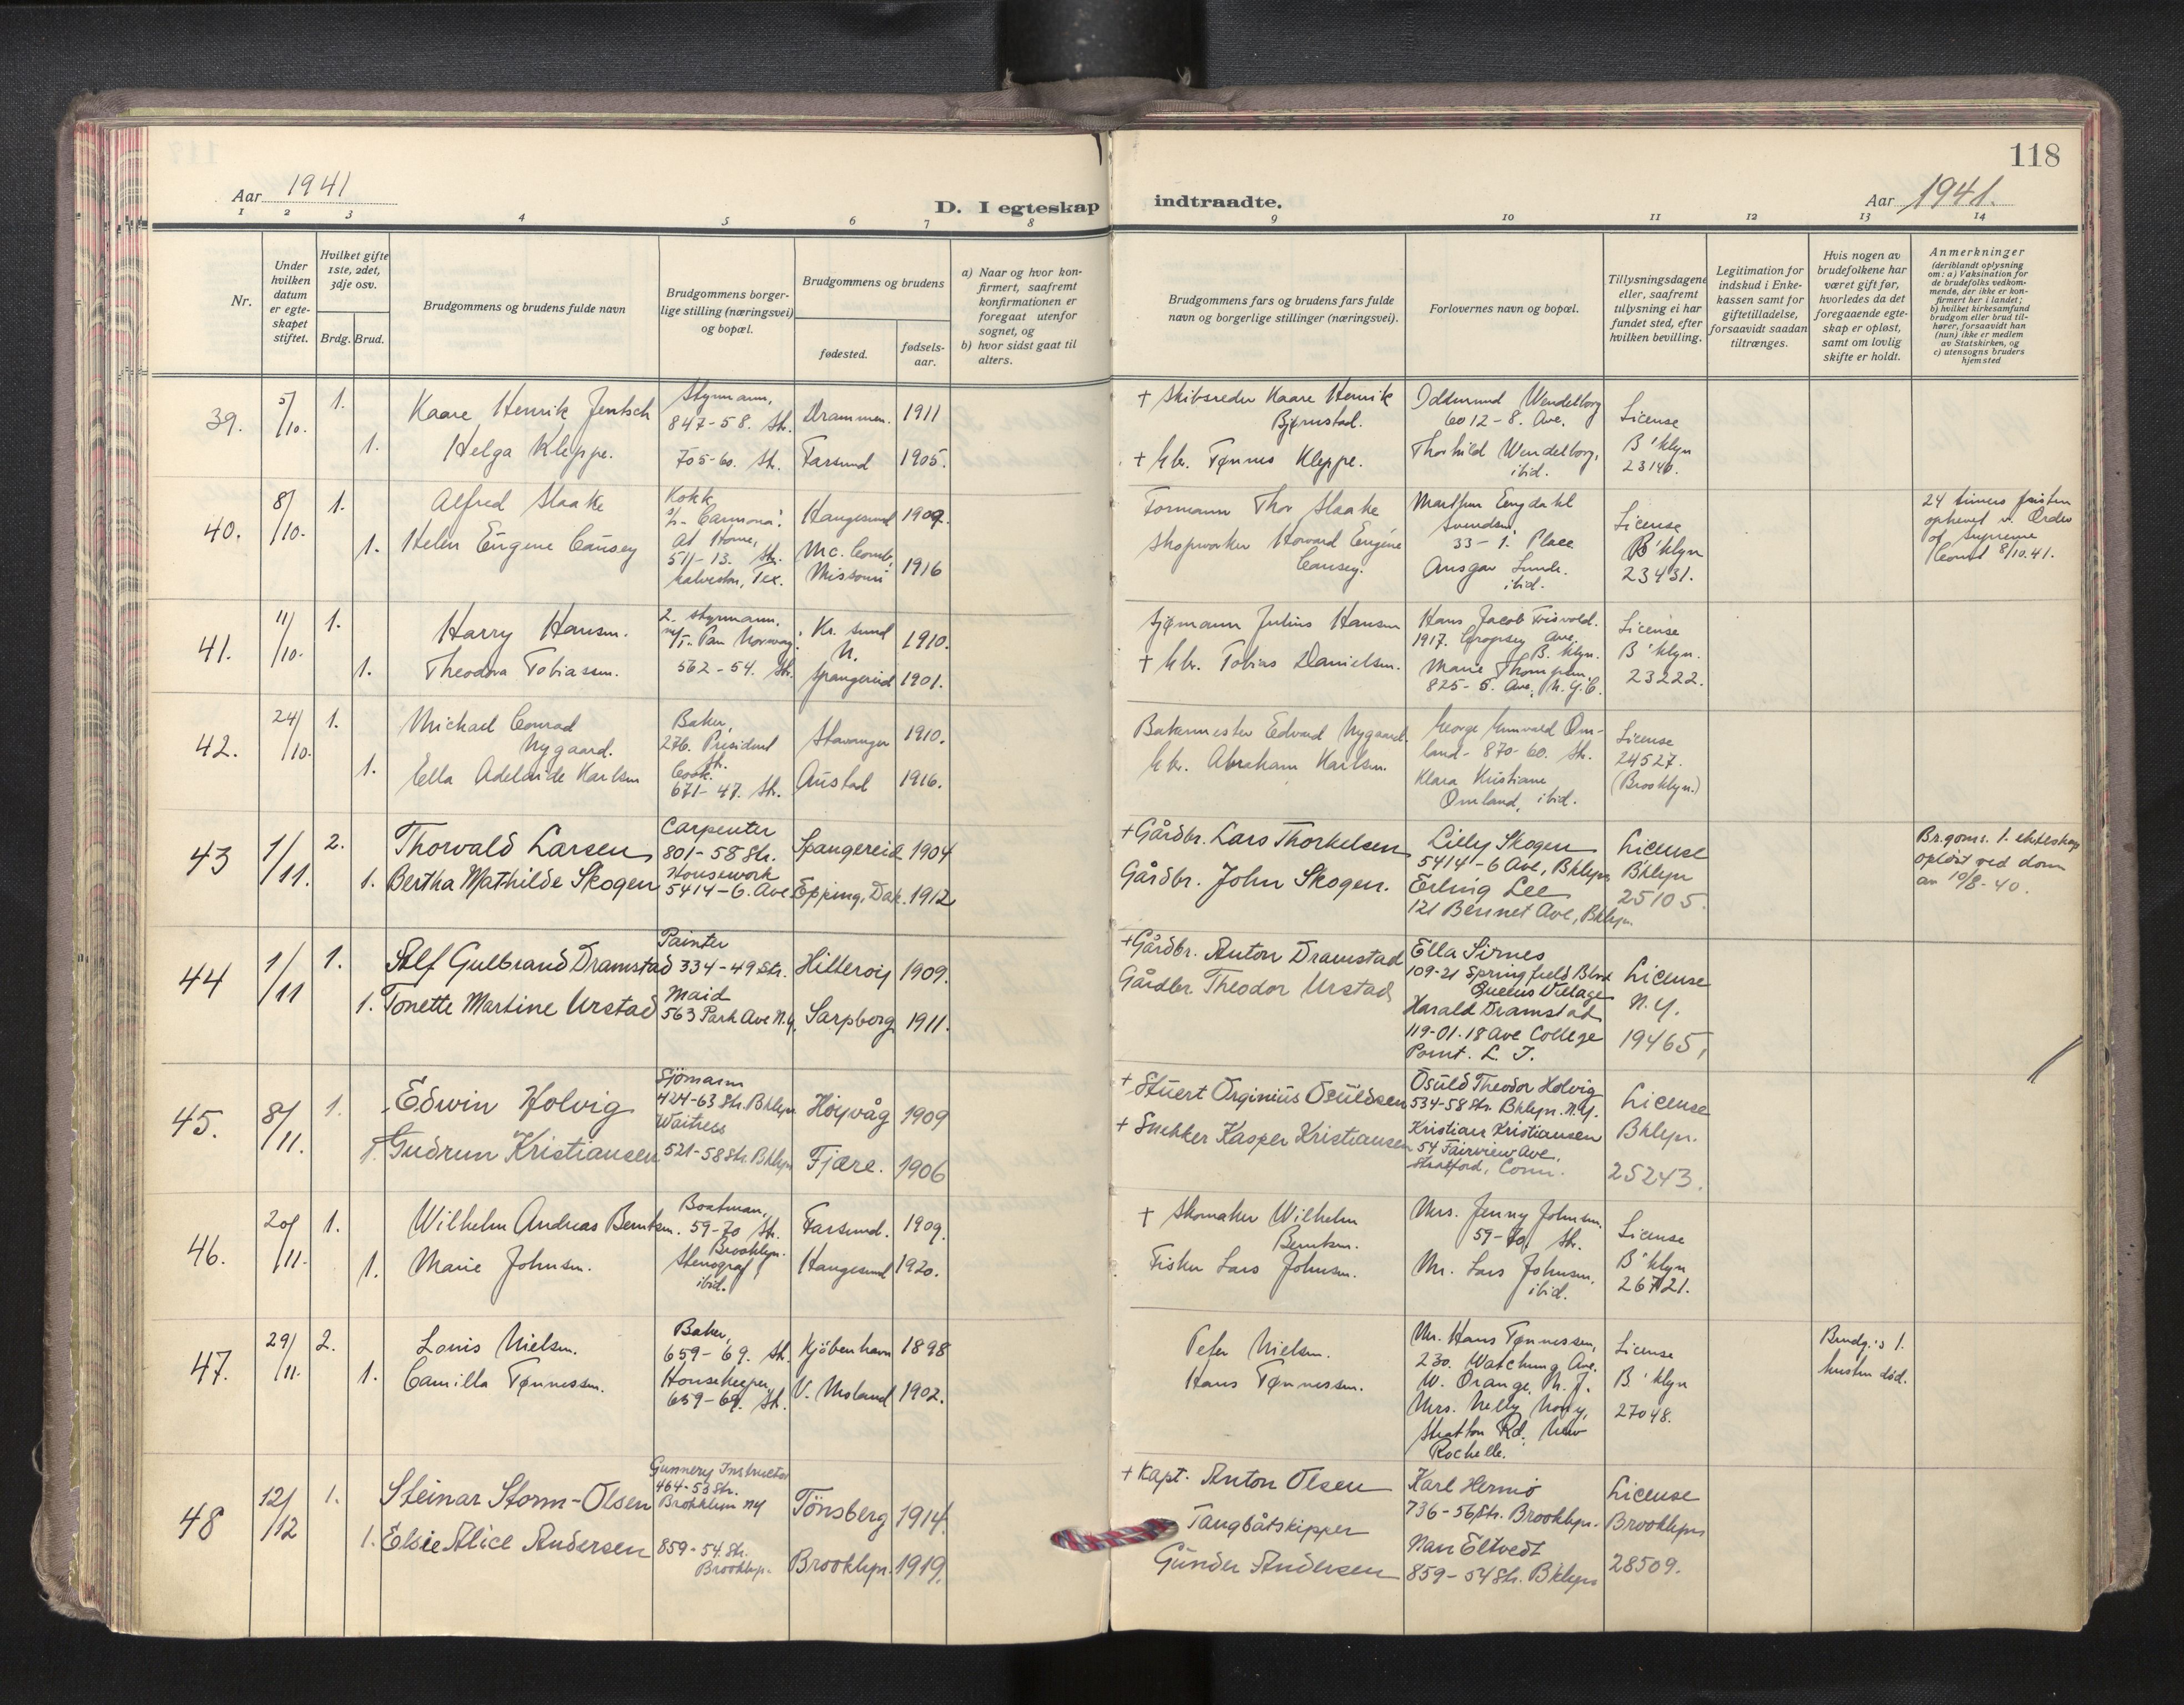 118
Aar 1941
D. I egteskap indtraadte.
Aar 1941.
1 2 3 4 5 6 7 8 9 10 11 12 13 14
Nr.
Under
hvilken
datum
er egte-
skapet
stiftet.
Hvilket gifte
1ste, 2det,
3dje osv.
Brdg. Brud.
Brudgommens og brudens fulde navn
Brudgommens borger-
lige stilling (næringsvei)
og bopæl.
Brudgommens og brudens
fødested.
fødsels-
aar.
a) Naar og hvor kon-
firmert, saafremt
konfirmationen er
foregaat utenfor
sognet, og
b) hvor sidst gaat til
alters.
Brudgommens fars og brudens fars fulde
navn og borgerlige stillinger (næringsvei).
Forlovernes navn og bopæl.
Tillysningsdagene
eller, saafremt
tillysning ei har
fundet sted, efter
hvilken bevilling.
Legitimation for
indskud i Enke-
kassen samt for
giftetilladelse,
forsaavidt saadan
tiltrænges.
Hvis nogen av
brudefolkene har
været gift før,
hvorledes da det
foregaaende egte-
skap er opløst,
samt om lovlig
skifte er holdt.
Anmerkninger
(deriblandt oplysning
om: a) Vaksination for
de brudefolks vedkom-
mende, der ikke er kon-
firmert her i landet;
b) hvilket kirkesamfund
brudgom eller brud til-
hører, forsaavidt han
(hun) ikke er medlem
av Statskirken, og
c) utensogns bruders
hjemsted
39.
5/10.
1.
Kaare Henrik Jentsch
Styrmann,
847-58. Str.
Drammen.
1911
1.
Helga Kleppe.
705-60. Str.
Farsund
1905.
+ Skibsreder Kaare Henrik
Bjørnstad.
+ Gbr. Tønnes Kleppe.
Oddmund Wendelborg
6012-8. Ave.
Thorhild Wendelborg,
ibid.
License
B'klyn
23146.
40.
8/10.
1.
Alfred Slaake
Kokk
s/s "Carmona".
Haugesund
1909.
1.
Helen Eugene Causey
At Home,
511-13. Str.
Galveston, Tex.
Mc. Comb,
Missouri
1916
Formann Thor Slaake
Shopworker Howard Eugene
Causey.
Marthin Engdahl
Svendsen
33-1. Place
Ansgar Lunde.
ibid.
License
B'klyn
23431.
24 timers fristen
ophevet v. Order
of Supreme
Court 8/10.41.
41.
11/10.
1.
Harry Hansen.
2. styrmann.
m/T. Pan Norway.
Kr. sund
N.
1910.
1.
Theodora Tobiassen.
562-54. Str.
Spangereid
1901.
Sjømann Julius Hansen
+ Gbr. Tobias Danielsen.
Hans Jacob Frisvold.
1917. Cropsey Ave.
B. klyn.
Marie Thompsen,
825-5. Ave, N.Y.C.
License
B'klyn.
23222.
42.
24/10.
1.
Michael Conrad
Nygaard.
Baker,
276. President
Str.
Stavanger
1910.
1.
Ella Adelaide Karlsen
Cook.
671-47. Str.
Austad
1916.
Bakermester Edvard Nygaard.
Gbr. Abraham Karlsen.
George Gunvald Om-
land- 870-60. Str.
Klara Kristiane
Omland, ibid.
License
24527.
(Brooklyn.)
43
1/11.
2.
Thorvald Larsen
Carpenter
801-58 Str.
Spangereid
1904
1.
Bertha Mathilde Skogen
Housework
5414-6. Ave
Epping, Dak.
1912
+Gårdbr. Lars Thorkelsen
Gårdbr. John Skogen.
Lilly Skogen
5414-6 Ave, Bklyn
Erling Lee
121 Bennet Ave, Bklyn.
License
B'klyn
25105.
Br.goms. 1. ekteskap
opløst ved dom
av 10/8-40.
44
1/11
1.
Alf Gulbrand Dramstad
Painter
334-49 Str.
Hitterøy
1909.
1.
Tonette Martine Urstad
Maid
563 Park Ave N.Y.
Sarpborg
1911.
+Gårdbr. Anton Dramstad
Gårdbr Theodor Urstad
Ella Sirnes
109-21 Springfield Blvd
Queens Village
Harald Dramstad
119-01.18 Ave College
Point. L. I.
License
N.Y.
19465,
45.
8/11.
1.
Edwin Holvig
Sjömann
424-63 Str. Bklyn
Höyvåg
1909
1.
Gudrun Kristiansen
Waitress
521-58 Str. Bklyn
Fjære.
1906
+ Stuert Orginius Osuldsen
+ Snekker Kasper Kristiansen
Osuld Theodor Holvig
534-58 Str. Bklyn. N.Y.
Kristian Kristiansen
54 Fairview Ave,
Stratford, Conn.
License
Bklyn.
25243.
46.
20/11.
1.
Wilhelm Andreas Berntsen.
Boatman,
59-70 Str.
Brooklyn.
Farsund.
1909.
1.
Marie Johnsen.
Stenograf,
ibid.
Haugesund
1920.
+ Skomaker Wilhelm
Berntsen.
Fisker Lars Johnsen.
Mrs. Jenny Johnsen.
59-70. Str.
Mr. Lars Johnsen,
ibid.
License
B'klyn
26721.
47.
29/11.
2.
Louis Nielsen.
Baker,
659-69. Str.
Kjöbenhavn
1898
1.
Camilla Tønnessen.
Housekeeper,
659-69. Str.
V. Nesland
1902.
Peter Nielsen.
Hans Tønnessen.
Mr. Hans Tønnessen,
230. Watchung Ave.
W. Orange, N. J.
Mrs. Nelly Nory,
Stratton Rd, New
Rochelle.
License
B.'klyn
27048.
Brudg.:s 1.
hustru död.
48
12/12
1.
Steinar Storm-Olsen
Gunnery Instructor
464-53 Str.
Brooklyn NY
Tönsberg
1914.
1.
Elsie Alice Andersen
859-54. Str.
Brooklyn.
Brooklyn.
1919.
+ Kapt. Anton Olsen
Taugbåtskipper
Gunder Andersen
Karl Hermö
736-56 Str. Brooklyn.
Nan Eltvedt
859-54 Str. B'klyn
License
Brooklyn
28509.